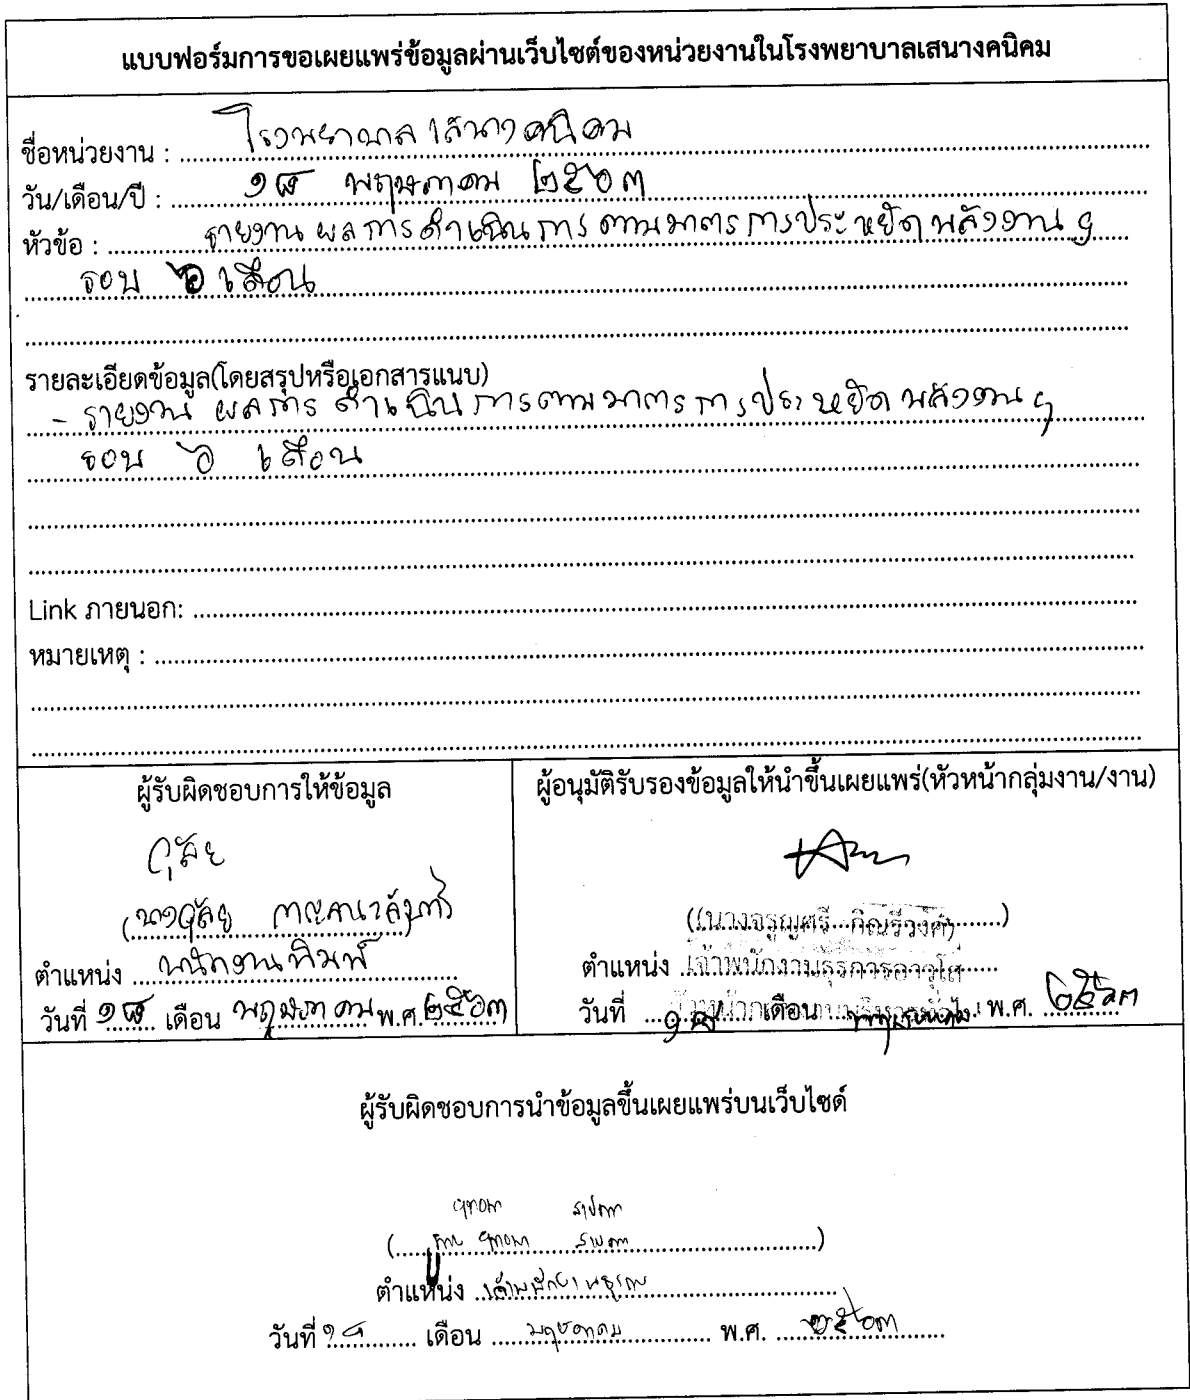 แบบฟอร์มการขอเผยแพร่ข้อมูลผ่านเว็บไซต์ของหน่วยงานในโรงพยาบาลเสนางคนิคม
ชื่อหน่วยงาน : โรงพยาบาลเสนางคนิคม
วัน/เดือน/ปี : ๑๘ พฤษภาคม ๒๕๖๓
หัวข้อ : รายงานผลการดำเนินการตามมาตรการประหยัดพลังงาน ฯ
รอบ ๖ เดือน
รายละเอียดข้อมูล(โดยสรุปหรือเอกสารแนบ)
- รายงานผลการดำเนินการตามมาตรการประหยัดพลังงาน ฯ
รอบ ๖ เดือน
Link ภายนอก:
หมายเหตุ :
ผู้รับผิดชอบการให้ข้อมูล
(นาง
ตำแหน่ง พนักงานพิมพ์
วันที่ ๑๘ เดือน พฤษภาคม พ.ศ. ๒๕๖๓
ผู้อนุมัติรับรองข้อมูลให้นำขึ้นเผยแพร่(หัวหน้ากลุ่มงาน/งาน)
(นางจรูญศรี
ตำแหน่ง เจ้าพนักงานธุรการอาวุโส
วันที่ ๑๘ เดือน พฤษภาคม พ.ศ. ๒๕๖๓
ผู้รับผิดชอบการนำข้อมูลขึ้นเผยแพร่บนเว็บไซต์
ตำแหน่ง เจ้าพนักงานธุรการ
วันที่ ๑๘ เดือน พฤษภาคม พ.ศ. ๒๕๖๓